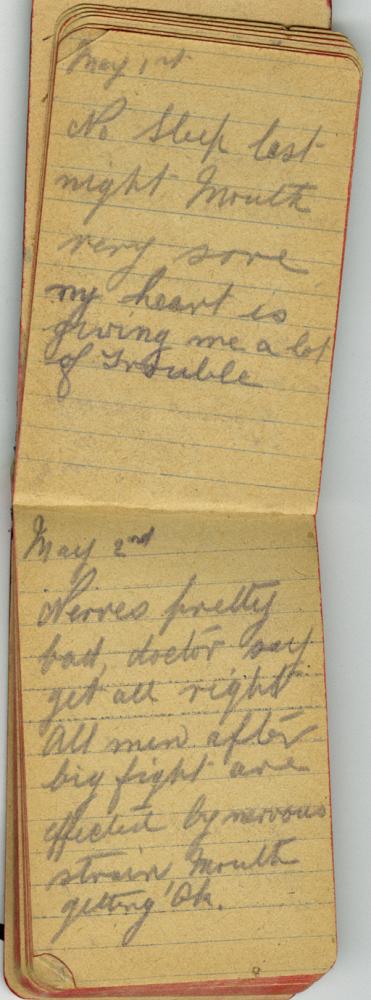 May 1st
No Sleep last
night Mouth
very sore
my heart is
giving me a lot
of Trouble
May 2nd
Nerves pretty
bad, doctor say
get all right
All men after
big fight are
effected by nervous
strain, Mouth
getting Ok.